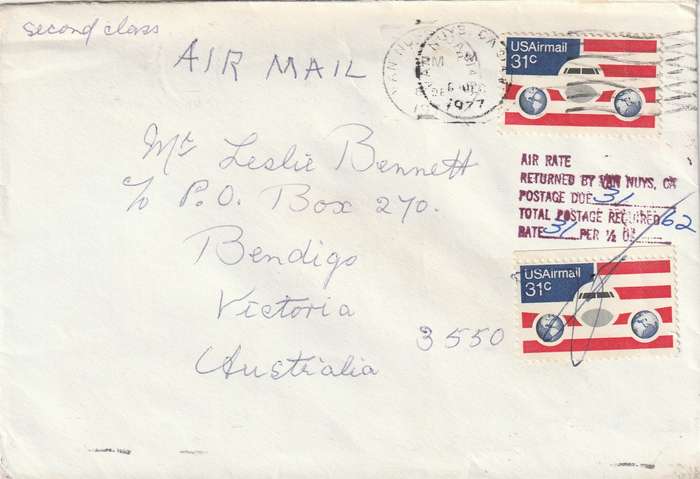 second class
AIR MAIL
VAN NUYS, CA
DEC
1977
USAirmail
31c
Mr Leslie Bennett
c/o P.O. Box 270.
Bendigo
Victoria
3550
Australia
AIR RATE
RETURNED BY VAN NUYS, CA
POSTAGE DUE 31
TOTAL POSTAGE REQUIRED 62
RATE 31 PER ½ OZ
USAirmail
31c